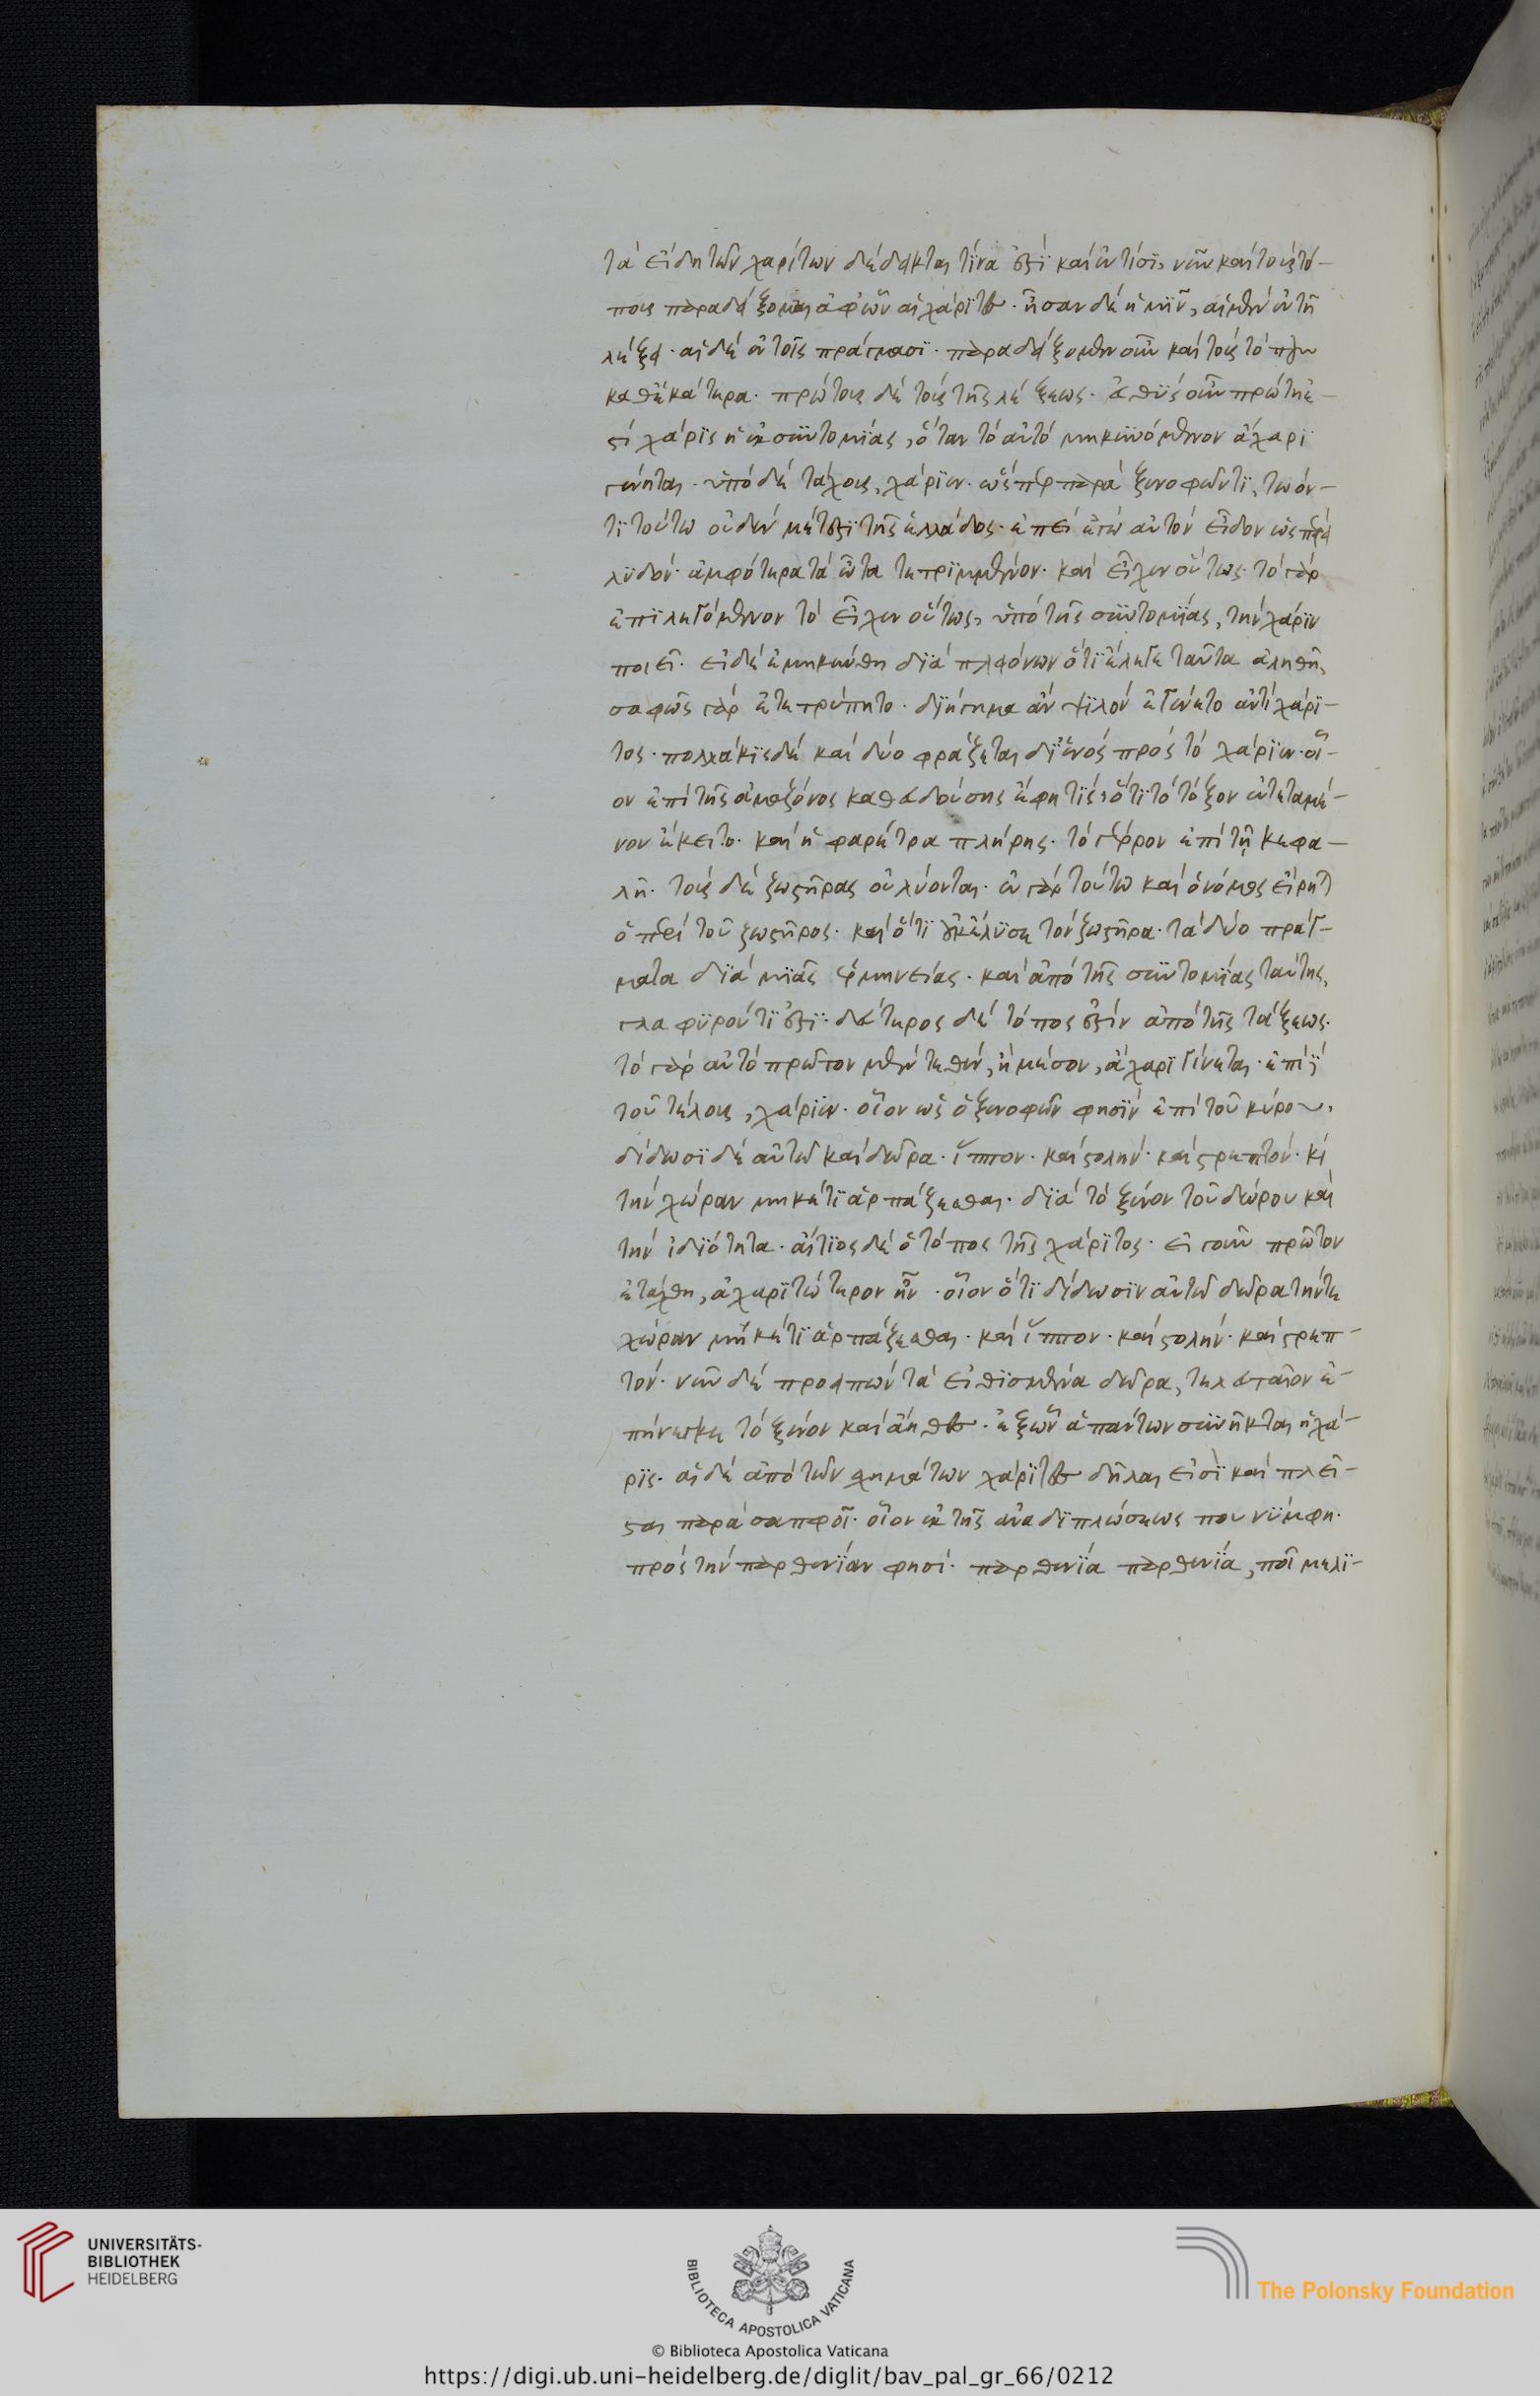 τὰ εἴδη τῶν χαρίτων δέδεικται τίνα ἐστὶ καὶ ἐν τίσι, νῦν καὶ τοὺς τό-
πους παραδείξομαι ἀφ' ὧν αἱ χάριτες· ἦσαν δὲ ἡμῖν, αἱ μὲν ἐν τῆ
λέξει· αἱ δὲ ἐν τοῖς πράγμασι· παραδείξομεν οὖν καὶ τοὺς τόπους
καθ' ἑκάτερα· πρώτους δὲ τοὺς τῆς λέξεως· εὐθὺς οὖν πρώτη ἐ-
στὶ χάρις ἡ ἐκ συντομίας, ὅταν τὸ αὐτὸ μηκυνόμενον ἄχαρι
γένηται· ὑπὸ δὲ τάχους, χάριεν· ὥσπερ παρὰ ξενοφῶντι, τῶ ὄν-
τι τούτω οὐδὲν μέτεστι τῆς ἑλλάδος· ἐπεὶ ἐγὼ αὐτὸν εἶδον ὡσπερεὶ
λυδὸν ἀμφότερα τὰ ὦτα τετριμμένον· καὶ εἶχεν οὕτως· τὸ γὰρ
ἐπιλεγόμενον τὸ εἶχεν οὕτως, ὑπὸ τῆς συντομίας, τὴν χάριν
ποιεῖ· εἰ δὲ ἐμηκύνθη διὰ πλειόνων ὅτι ἔλεγε ταῦτα ἀληθῆ,
σαφῶς γὰρ ἐτετρύπητο· διήγημα ἂν ψιλὸν ἐγένετο ἀντὶ χάρι-
τος· πολλάκις δὲ καὶ δύο φράζεται δι' ἑνὸς πρὸς τὸ χάριεν· οἷ-
ον ἐπὶ τῆς ἀμαζόνος καθευδούσης ἔφη τὶς, ὅτι τὸ τόξον ἐντεταμέ-
νον ἔκειτο· καὶ ἡ φαρέτρα πλήρης· τὸ γέρρον ἐπὶ τῆ κεφα-
λῆ· τοὺς δὲ ζωστῆρας οὐ λύονται· ἐν γὰρ τούτω καὶ ὁ νόμος εἴρηται
ὁ περὶ τοῦ ζωστῆρος· καὶ ὅτι οὐκ ἔλυσε τὸν ζωστῆρα· τὰ δύο πράγ-
ματα διὰ μιᾶς ἑρμηνείας· καὶ ἀπὸ τῆς συντομίας ταύτης,
γλαφυρόν τι ἐστι· δεύτερος δὲ τόπος ἐστὶν ἀπὸ τῆς τάξεως·
τὸ γὰρ αὐτὸ πρῶτον μὲν τεθὲν, ἢ μέσον, ἄχαρι γίνεται· ἐπὶ δὲ
τοῦ τέλους, χάριεν· οἷον ὡς ὁ ξενοφῶν φησὶν ἐπὶ τοῦ κύρου,
δίδωσι δὲ αὐτῶ καὶ δῶρα· ἵππον· καὶ στολὴν· καὶ στρεπτόν· καὶ
τὴν χώραν μηκέτι ἁρπάζεσθαι· διὰ τὸ ξένον τοῦ δώρου καὶ
τὴν ἰδιότητα· αἴτιος δὲ ὁ τόπος τῆς χάριτος· εἰ γοῦν πρῶτον
ἐτάχθη, ἀχαριτώτερον ἦν· οἷον ὅτι δίδωσιν αὐτῶ δῶρα τήν τε
χώραν μηκέτι ἁρπάζεσθαι· καὶ ἵππον· καὶ στολὴν· καὶ στρεπ-
τόν· νῦν δὲ προειπὼν τὰ εἰθισμένα δῶρα, τελευταῖον ἐ-
πήνεγκε τὸ ξένον καὶ ἄηθες· ἐξ ὧν ἁπάντων συνῆκται ἡ χά-
ρις· αἱ δὲ ἀπὸ τῶν σχημάτων χάριτες δῆλαι εἰσὶ καὶ πλεῖ-
σται παρὰ σαπφοῖ· οἷον ἐκ τῆς ἀναδιπλώσεως που νύμφη·
πρὸς τὴν παρθενίαν φησὶ· παρθενία παρθενία, ποῖ με λι-
UNIVERSITÄTS-
BIBLIOTHEK
HEIDELBERG
BIBLIOTECA APOSTOLICA VATICANA
The Polonsky Foundation
© Biblioteca Apostolica Vaticana
https://digi.ub.uni-heidelberg.de/diglit/bav_pal_gr_66/0212